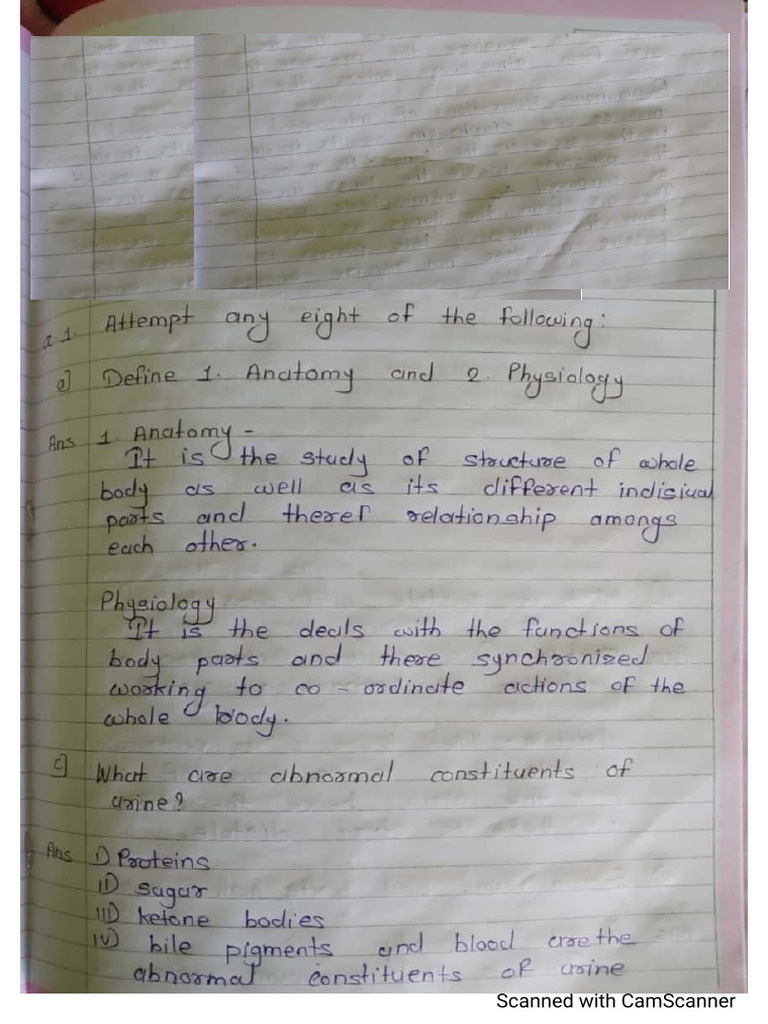 Q 1. Attempt any eight of the following:
a] Define 1. Anatomy and 2. Physiology
Ans 1. Anatomy -
It is the study of structure of whole
body as well as its different indisiual
parts and theref relationship amongs
each other.
Physiology
It is the deals with the functions of
body parts and there synchronized
working to co-ordinate actions of the
whole body.
c] What are abnormal constituents of
urine?
Ans I) Proteins
II) sugar
III) ketone bodies
IV) bile pigments and blood are the
abnormal constituents of urine
Scanned with CamScanner